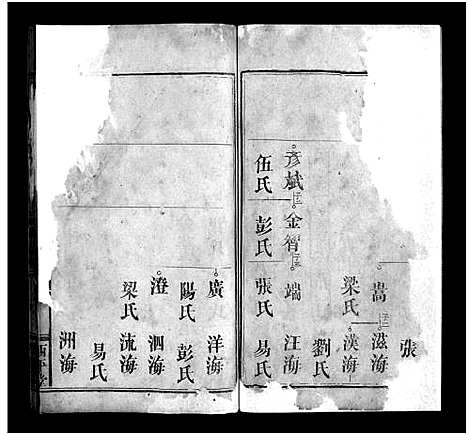 張
嵩 滋海
梁氏 漢海
劉氏
彦斌 金智 端 汪海
伍氏 彭氏 張氏 易氏
廣 洋海
陽氏 彭氏
澄 泗海
梁氏 流海
易氏
洲海